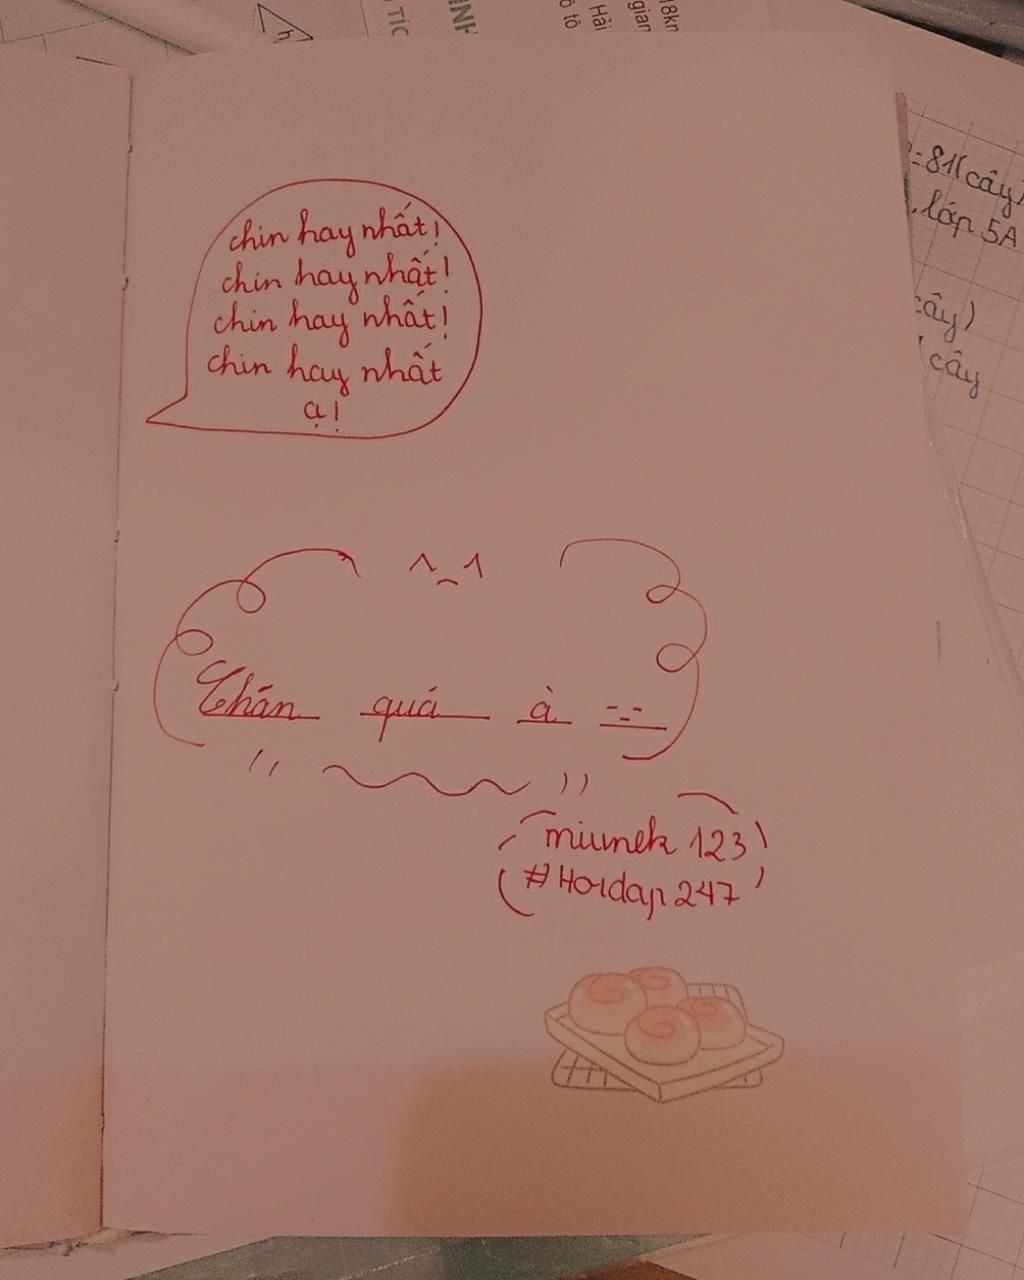 TÍC
INH
ô tô
Hải
gian
18km
=81(cây)
lớp 5A
cây)
cây
chin hay nhất!
chin hay nhất!
chin hay nhất!
chin hay nhất
ạ!
^_^
Chán quá à -.-
" ~~~ "
miunek 123
#Hoidap247